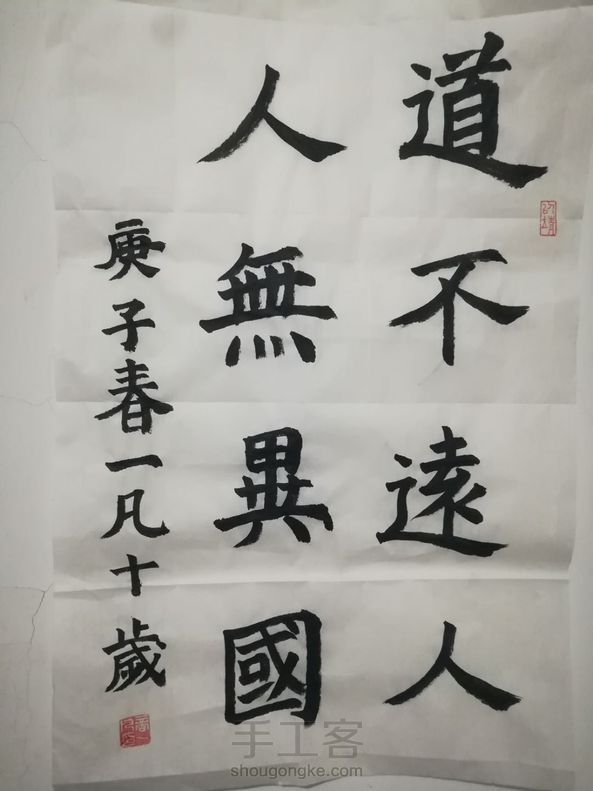 道不遠人
人無異國
庚子春一凡十歲
手工客
shougongke.com